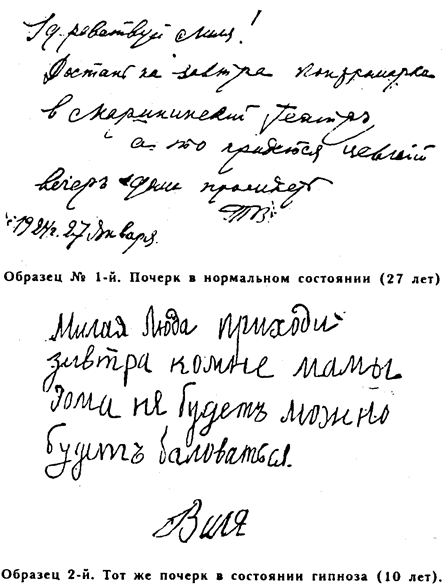 Здравствуй Лиля!
Достань на завтра контрамарка
в Мариинский Театръ
а то придется целый
вечеръ дома просидеть
1924г. 27 Января.
Образец № 1-й. Почерк в нормальном состоянии (27 лет)
Милая Люда приходи
завтра комне мамы
дома не будетъ можно
будетъ баловаться.
Виля
Образец 2-й. Тот же почерк в состоянии гипноза (10 лет).